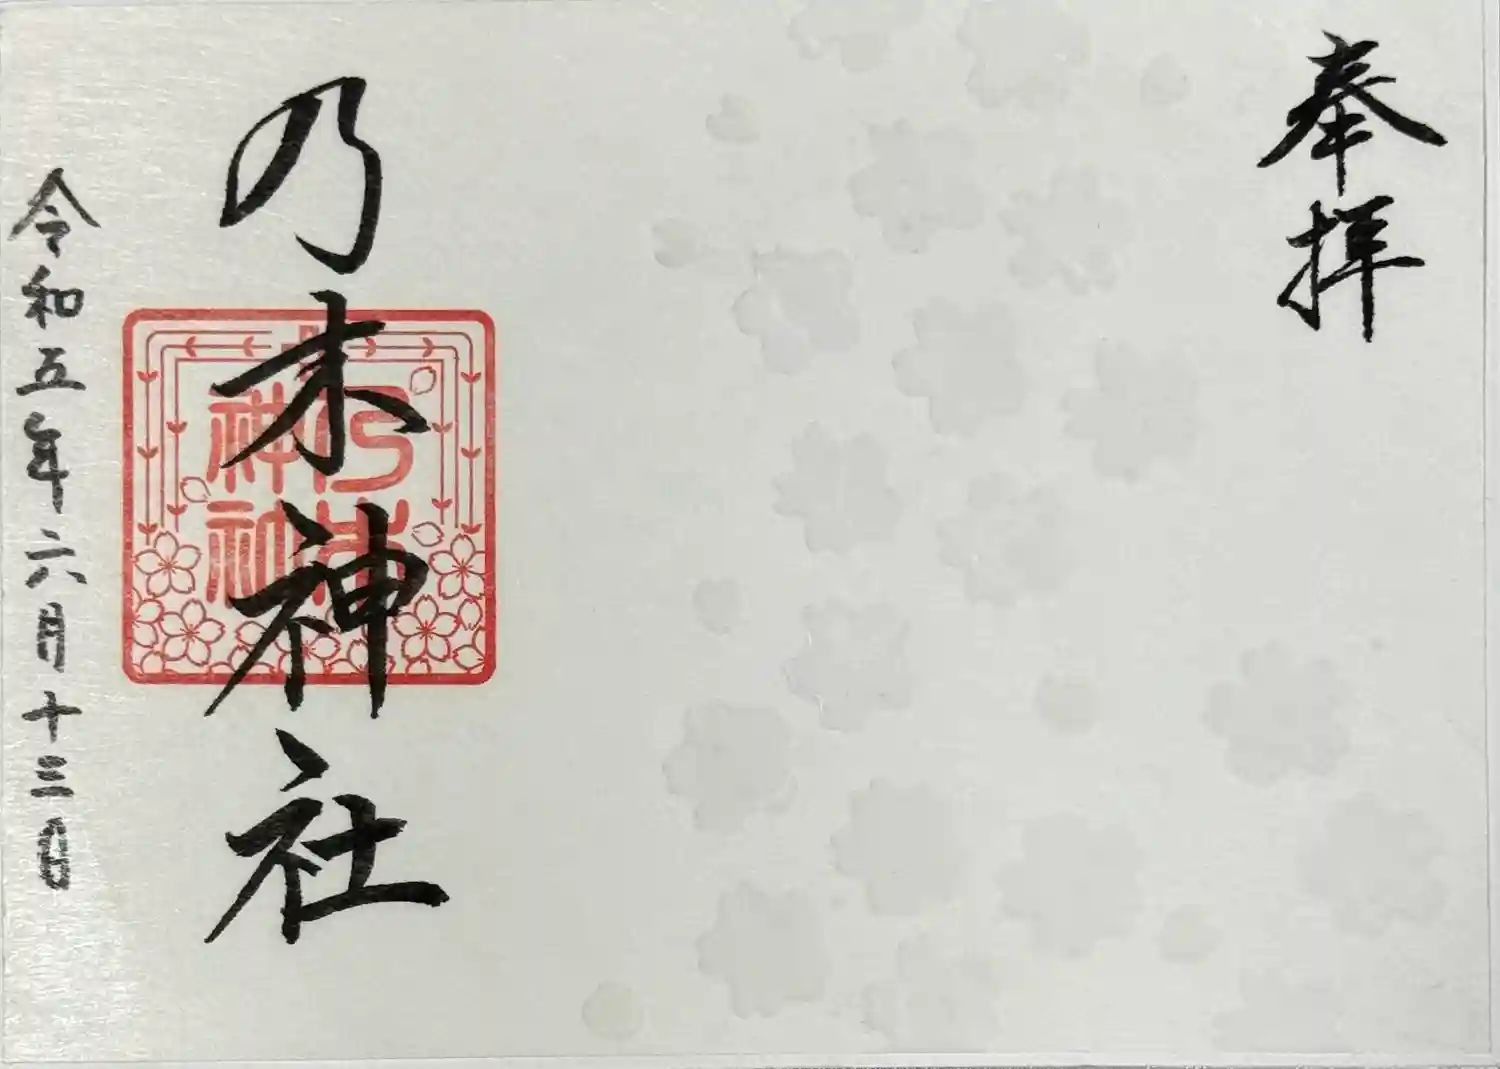 奉拝
乃木神社
乃木
神社
令和五年六月十三日